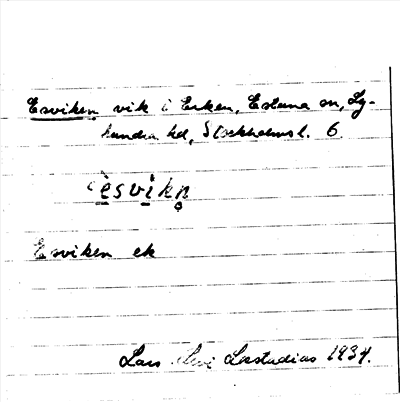 Esviken vik i Erken, Estuna sn, Ly-
hundra hd, Stockholms l. 6
èsvikn̥
Esviken ek
Lars Levi Læstadius 1934.